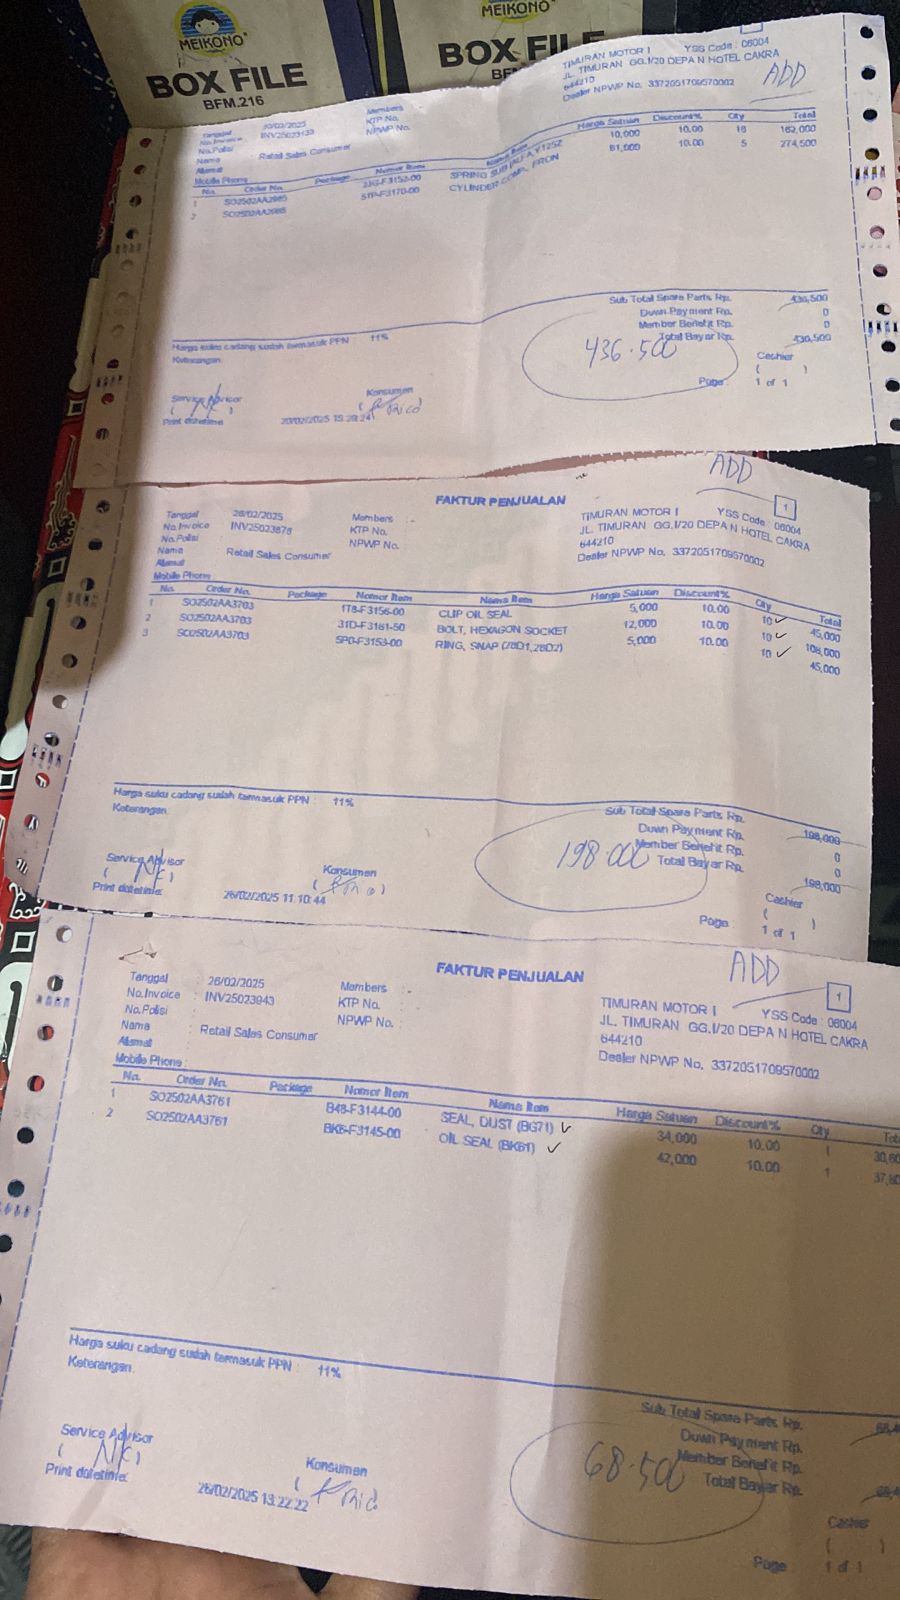 MEIKONO
BOX FILE
BFM.216
MEIKONO
BOX FILE
TIMURAN MOTOR I YSS Code : 06004
JL. TIMURAN GG.I/20 DEPA N HOTEL CAKRA
644210
Dealer NPWP No. 3372051709570002
ADD
Tanggal 20/02/2025 Members
No.Invoice INV25023133 KTP No.
No.Polisi NPWP No.
Nama Retail Sales Consumer
Alamat
Mobile Phone
No. Order No. Package Nomor Item Nama Item Harga Satuan Discount% Qty Total
1 SPRING 10,000 10.00 18 162,000
2 5TP-F3170-00 CYLINDER COMP, FRON 61,000 10.00 5 274,500
Sub Total Spare Parts Rp. 436,500
Down Payment Rp. 0
Member Benefit Rp. 0
Total Bayar Rp. 436,500
436.500
Harga suku cadang sudah termasuk PPN 11%
Keterangan
Service Advisor Konsumen Cashier
Print datetime: 20/02/2025 15:29:24
Page 1 of 1
FAKTUR PENJUALAN
ADD
1
Tanggal 26/02/2025 Members :
No.Invoice INV25023878 KTP No.
No.Polisi NPWP No.
Nama Retail Sales Consumer
Alamat
Mobile Phone
TIMURAN MOTOR I YSS Code : 06004
JL. TIMURAN GG.I/20 DEPA N HOTEL CAKRA
644210
Dealer NPWP No. 3372051709570002
No. Order No. Package Nomor Item Nama Item Harga Satuan Discount% Qty Total
1 SO2502AA3703 1T8-F3156-00 CLIP OIL SEAL 5,000 10.00 10 45,000
2 SO2502AA3703 31D-F3161-50 BOLT, HEXAGON SOCKET 12,000 10.00 10 108,000
3 SO2502AA3703 5P0-F3153-00 RING, SNAP (28D1,28D2) 5,000 10.00 10 45,000
Harga suku cadang sudah termasuk PPN : 11%
Keterangan
Sub Total Spare Parts Rp. 198,000
Down Payment Rp. 0
Member Benefit Rp. 0
Total Bayar Rp. 198,000
198.000
Service Advisor Konsumen Cashier
Print datetime: 26/02/2025 11:10:44
Page 1 of 1
FAKTUR PENJUALAN
ADD
1
Tanggal : 26/02/2025 Members :
No.Invoice : INV25023943 KTP No. :
No.Polisi : NPWP No. :
Nama : Retail Sales Consumer
Alamat :
Mobile Phone :
TIMURAN MOTOR I YSS Code : 06004
JL. TIMURAN GG.I/20 DEPA N HOTEL CAKRA
644210
Dealer NPWP No. 3372051709570002
No. Order No. Package Nomor Item Nama Item Harga Satuan Discount% Qty
1 SO2502AA3761 B48-F3144-00 SEAL, DUST (BG71) 34,000 10.00 1
2 SO2502AA3761 BK6-F3145-00 OIL SEAL (BK61) 42,000 10.00 1
Harga suku cadang sudah termasuk PPN : 11%
Keterangan
Sub Total Spare Parts Rp.
Down Payment Rp.
Member Benefit Rp.
Total Bayar Rp.
68.500
Service Advisor Konsumen Cashier
Print datetime: 26/02/2025 13:22:22
Page 1 of 1